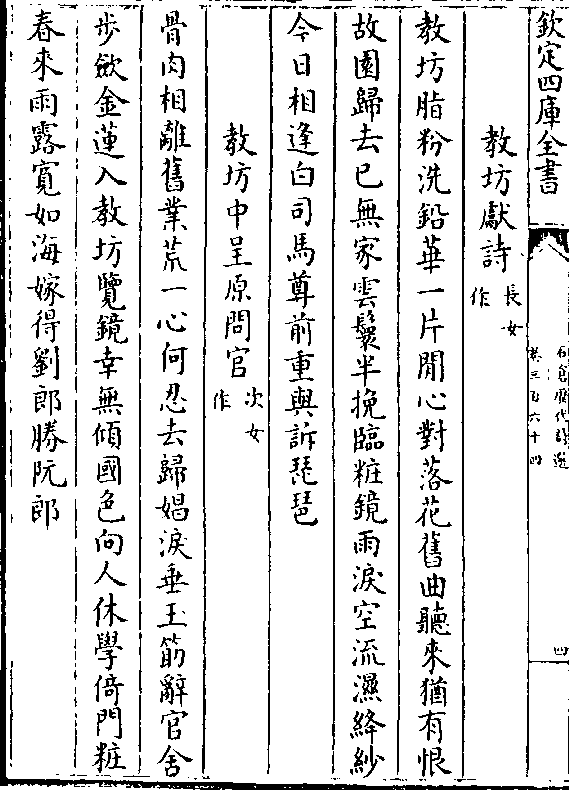 欽定四庫全書
石倉歷代詩選
卷三百六十四
四
教坊獻詩 長女作
教坊脂粉洗鉛華一片閒心對落花舊曲聽來猶有恨
故園歸去已無家雲鬟半挽臨粧鏡雨淚空流濕絳紗
今日相逢白司馬尊前重與訴琵琶
教坊中呈原問官 次女作
骨肉相離舊業荒一心何忍去歸娼淚垂玉筯辭官舍
步斂金蓮入教坊覽鏡幸無傾國色向人休學倚門粧
春來雨露寛如海嫁得劉郎勝阮郎